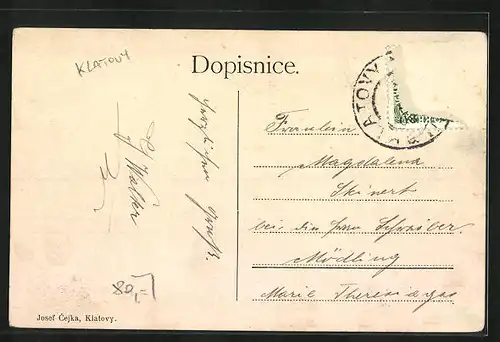 KLATOVY
Dopisnice.
KLATOVY
Herzlichen Gruß.
Walter
Fräulein
Magdalena
Skinert
bei
Mödling
Marie Theresiag
80,-
Josef Čejka, Klatovy.